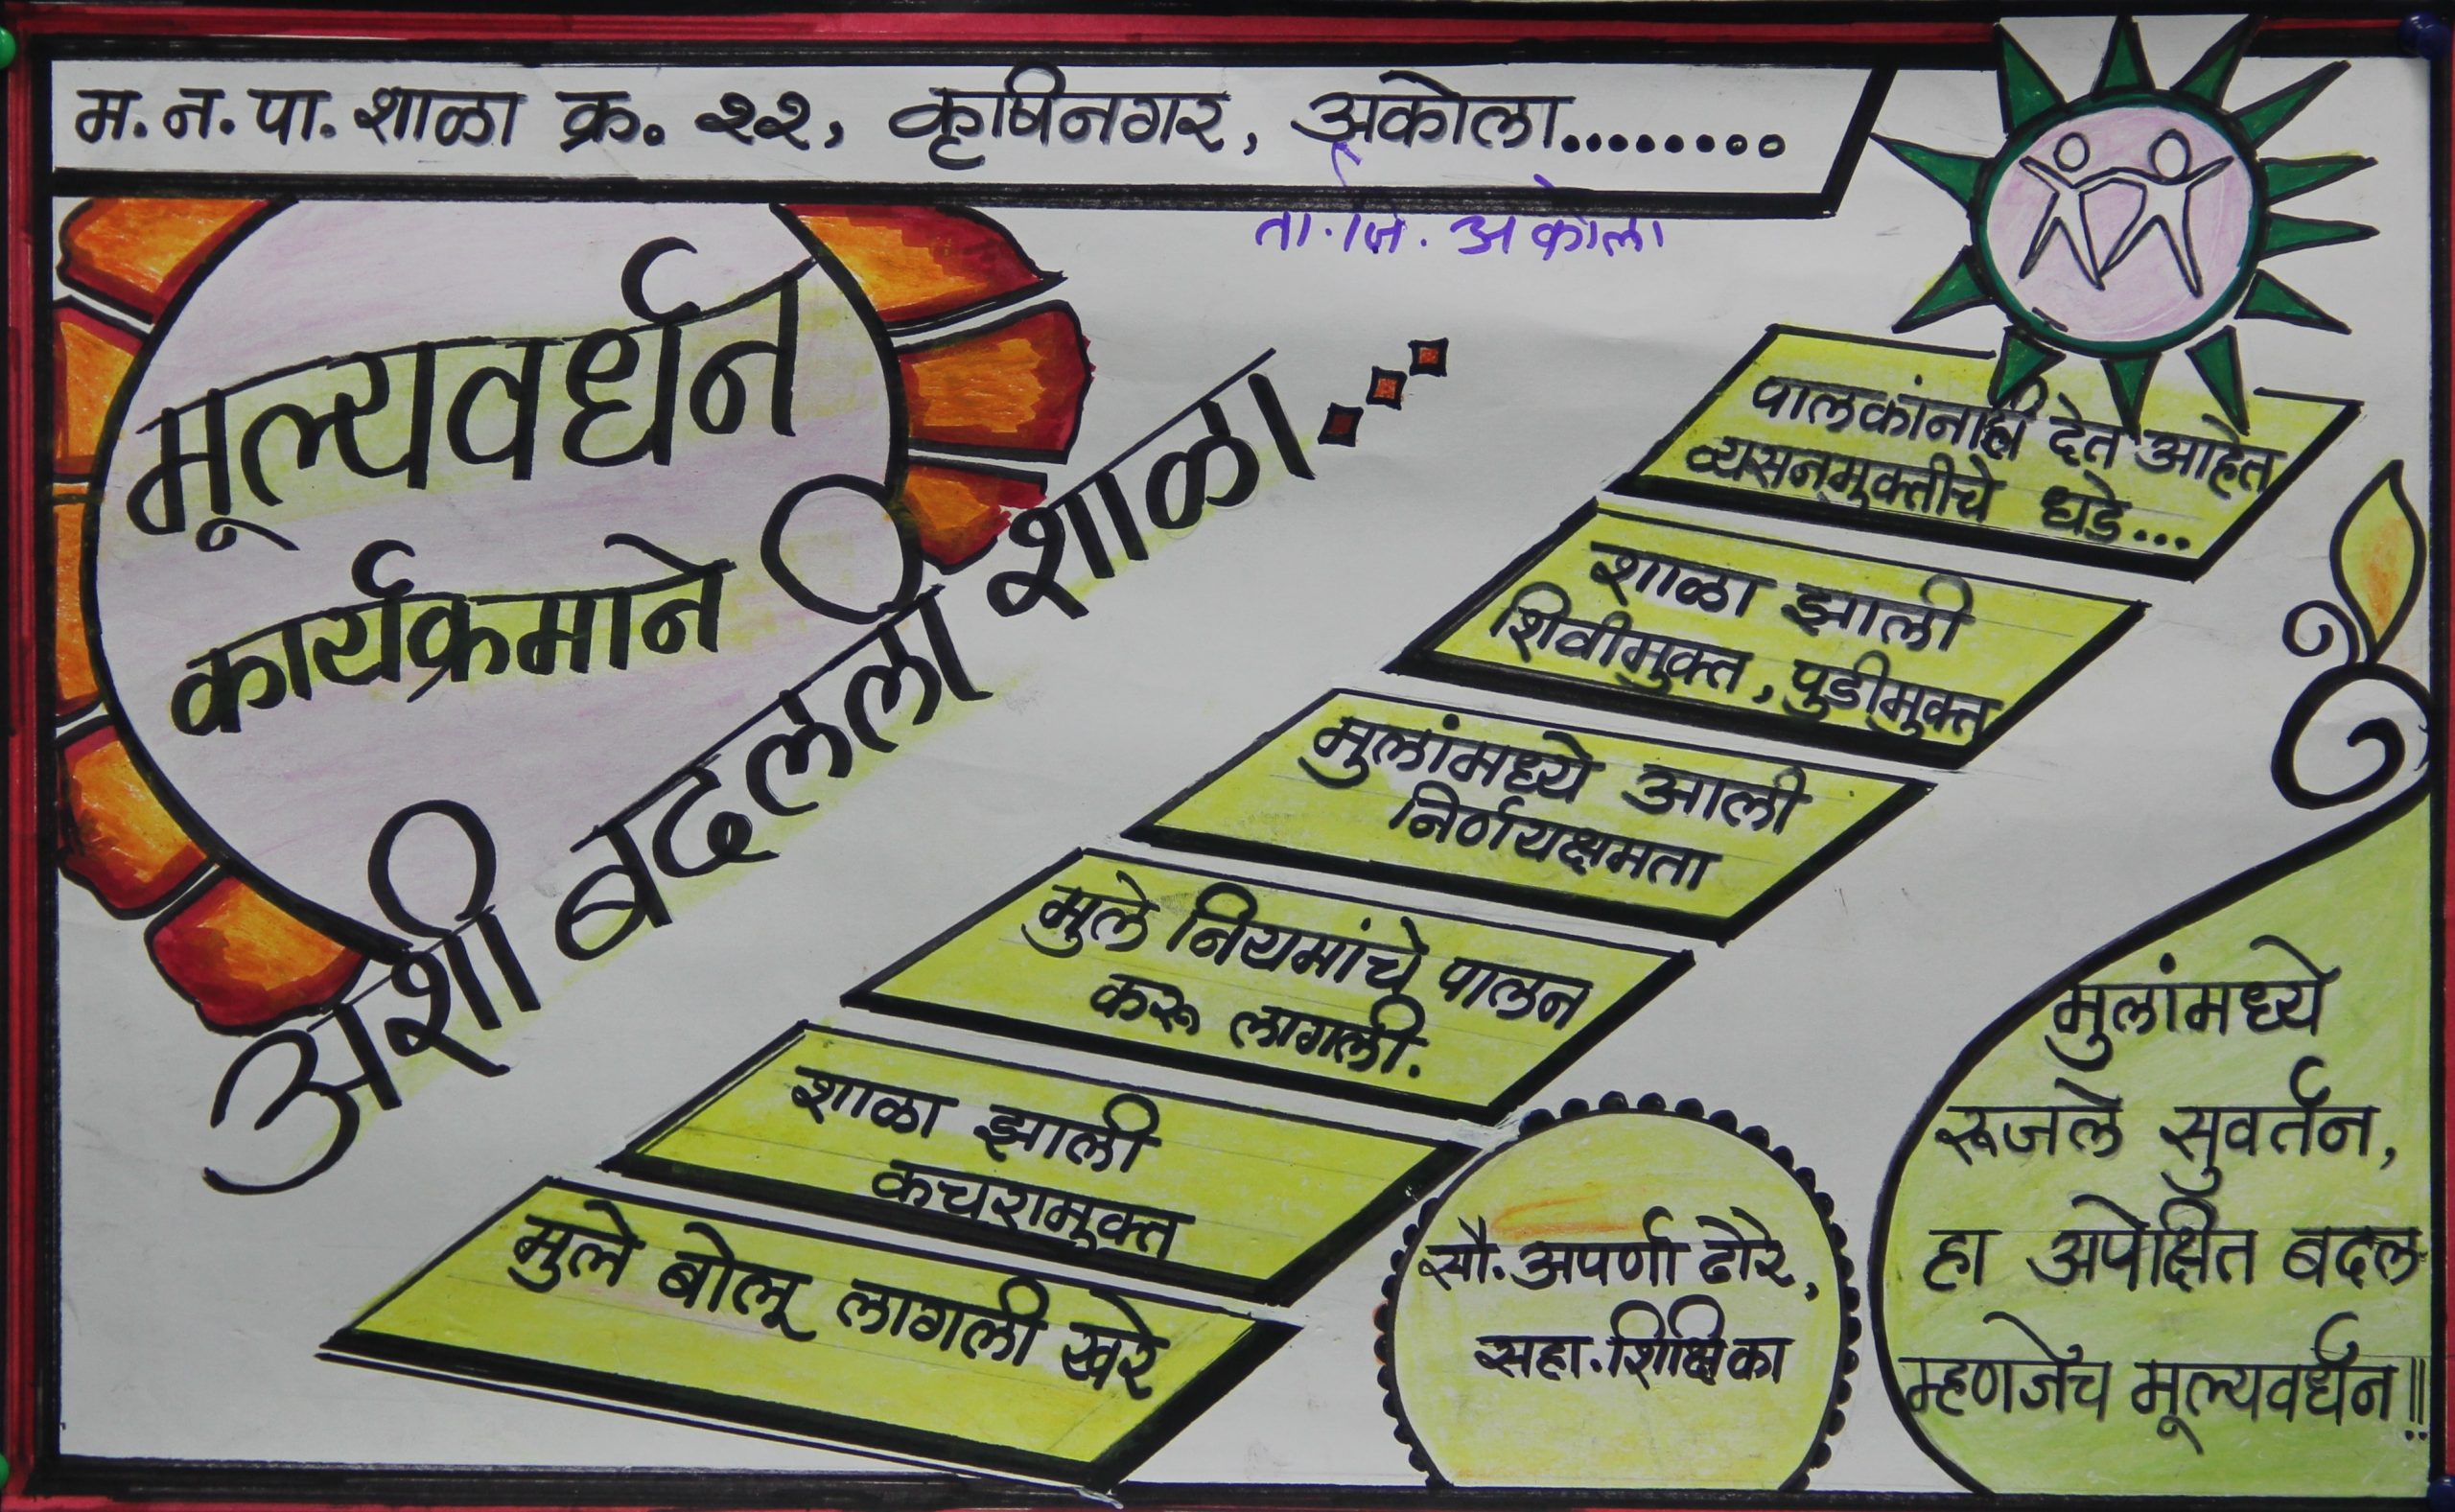 म. न. पा. शाळा क्र. २२, कृषीनगर, अकोला........
ता. जि. अकोला
मूल्यवर्धन
कार्यक्रमाने
अशी बदलली शाळा...
पालकांनाही देत आहेत
व्यसनमुक्तीचे धडे...
शाळा झाली
शिवीमुक्त, पुडीमुक्त
मुलांमध्ये आली
निर्णयक्षमता
मुले नियमांचे पालन
करू लागली.
शाळा झाली
कचरामूक्त
मुले बोलू लागली खरे
सौ. अपर्णा ढोरे,
सहा. शिक्षिका
मुलांमध्ये
रूजले सुवर्तन,
हा अपेक्षित बदल
म्हणजेच मूल्यवर्धन!!